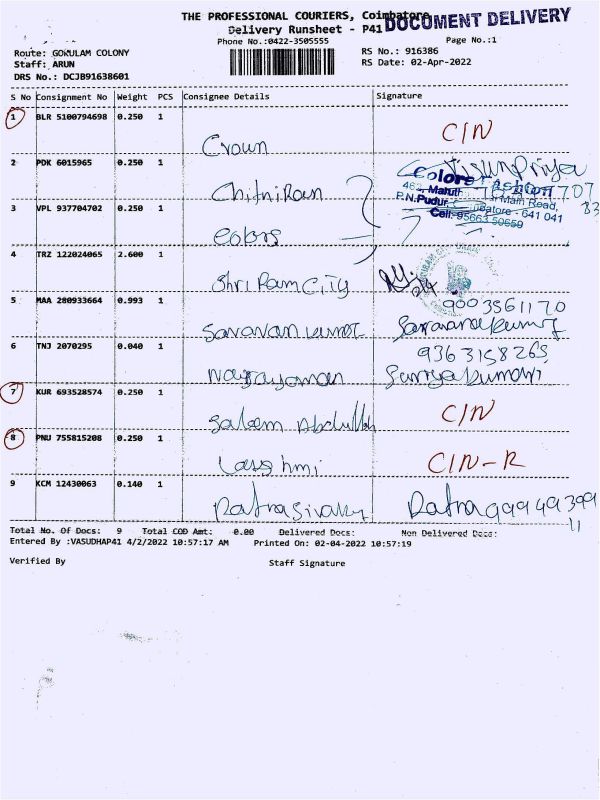 THE PROFESSIONAL COURIERS, Coimbatore
DOCUMENT DELIVERY
Delivery Runsheet - P41
Phone No.:0422-3505555
Page No.:1
Route: GOKULAM COLONY
RS No.: 916386
Staff: ARUN
RS Date: 02-Apr-2022
DRS No.: DCJB91638601
S No Consignment No Weight PCS Consignee Details Signature
1 BLR 5100794698 0.250 1 Crown C/N
2 PDK 6015965 0.250 1
3 VPL 937704702 0.250 1 Colors
Colors
P.N.Pudur Coimbatore - 641 041
Cell: 95663 50659
4 TRZ 122024065 2.600 1 Shri Ram City
5 MAA 280933664 0.993 1 Saravan kumar 9003561170
Saravanakumar
6 TNJ 2070295 0.040 1 Narayanan 9363158265
Suriyakumari
7 KUR 693528574 0.250 1 Saleem Abdullah C/N
8 PNU 755815208 0.250 1 Laxshmi C/N-R
9 KCM 12430063 0.140 1 Ratnasivaky Ratna 9994939911
Total No. Of Docs: 9 Total COD Amt: 0.00 Delivered Docs: Non Delivered Docs:
Entered By :VASUDHAP41 4/2/2022 10:57:17 AM Printed On: 02-04-2022 10:57:19
Verified By Staff Signature